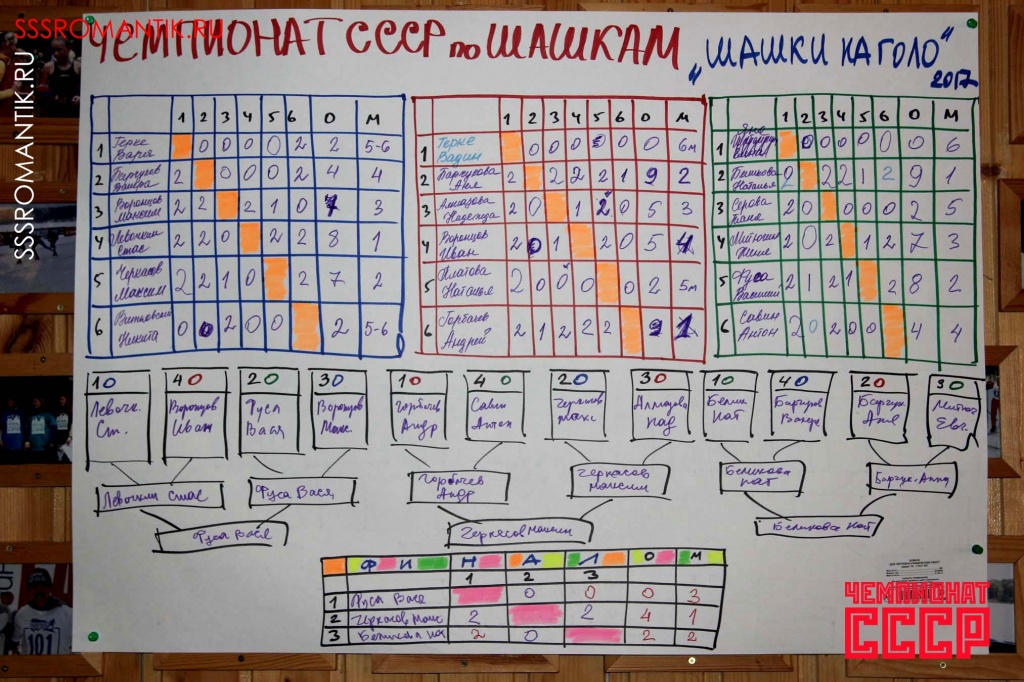 SSSROMANTIK.RU
SSSROMANTIK.RU
ЧЕМПИОНАТ СССР по ШАШКАМ „ШАШКИ НАГОЛО"
2017
1 2 3 4 5 6 О М
1 Герке Варя 0 0 0 0 2 2 5-6
2 Баргуев 2 0 0 0 2 4 4
3 Воронцов Максим 2 2 2 1 0 7 3
4 Левочкин Стас 2 2 0 2 2 8 1
5 Черкасов Максим 2 2 1 0 2 7 2
6 Никита 0 0 2 0 0 2 5-6
1 2 3 4 5 6 О М
1 Герке Вадим 0 0 0 0 0 0 6м
2 Аня 2 2 2 2 1 9 2
3 Алмазова Надежда 2 0 1 2 0 5 3
4 Воронцов Иван 2 0 1 2 0 5 4
5 Платова Наталья 2 0 0 0 0 2 5м
6 Горбачев Андрей 2 1 2 2 2 9 1
1 2 3 4 5 6 О М
1 0 0 0 0 0 0 6
2 Наталья 2 2 2 1 2 9 1
3 Серова Таня 2 0 0 0 0 2 5
4 2 0 2 1 2 7 3
5 Фуса Василий 2 1 2 1 2 8 2
6 Савин Антон 2 0 2 0 0 4 4
1О 4О 2О 3О 1О 4О 2О 3О 1О 4О 2О 3О
Левочк. Ст.
Воронцов Иван
Фуса Вася
Воронцов Макс.
Горбачев Андр
Савин Антон
Черкасов Макс
Алмазова Над
Белик Нат
Баргуев
Баргуз Аня
Левочкин Стас
Фуса Вася
Горбачев Андр
Черкасов Максим
Беликова Нат
Фуса Вася
Черкасов Максим
Беликова Нат
Ф И Н А Л О М
1 2 3
1 Фуса Вася 0 0 0 3
2 Черкасов Макс 2 2 4 1
3 Беликова Нат 2 0 2 2
ЧЕМПИОНАТ
СССР
101